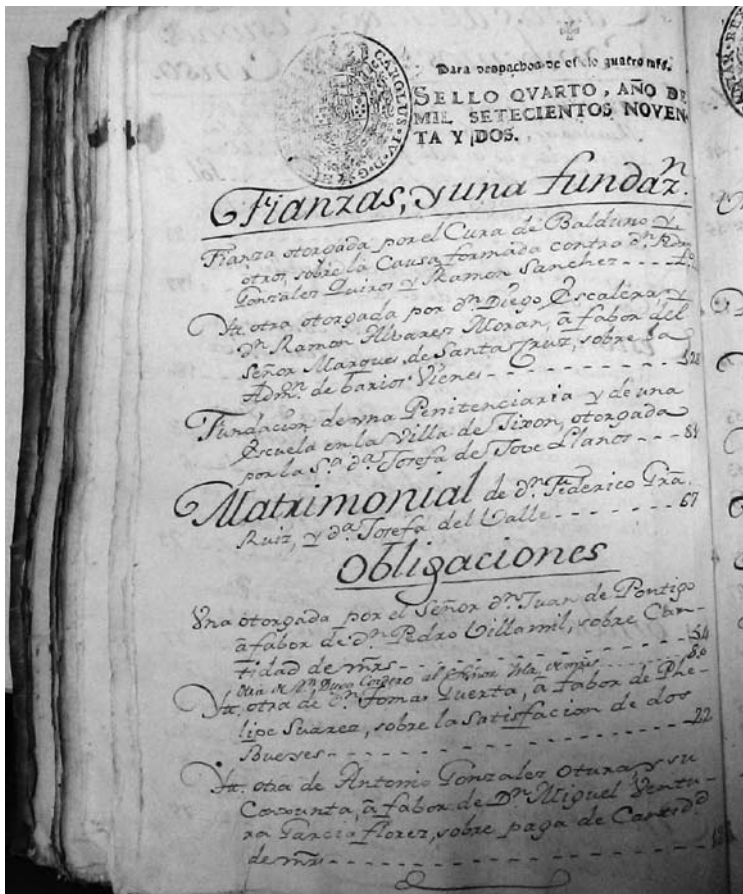 CAROLUS IV D. G.
Para despachos de oficio quatro mrs.
SELLO QVARTO, AÑO DE
MIL SETECIENTOS NOVEN-
TA Y DOS.
Fianzas, y una fundaz.n
Fianza otorgada por el Cura de Balduno y
otros, sobre la Causa formada contra d.n
Gonzalez Quiros y Ramon Sanchez
Yt. otra otorgada por d.n Diego Escalera, y
d.n Ramon Albarez Moran, â fabor del
Señor Marques de Santa Cruz, sobre la
Adm.n de barios Vienes
Fundacion de vna Penitenciaria y de una
Escuela en la Villa de Jixon, otorgada
por la S.a d.a Josefa de Jove Llanos - - - 81
Matrimonial de d.n Federico Gra.
Ruiz, y d.a Josefa del Valle - - - 67
Obligaciones
Vna otorgada por el Señor d.n Juan de Pontigo
â fabor de d.n Pedro Villamil, sobre Can-
tidad de mrs - - - 54
Yt. otra de d.n Tomas Querta, â fabor de Phe-
lipe Suarez, sobre la Satisfacion de dos
Bueyes - - - 22
Yt. otra de Antonio Gonzalez Otura, y su
Conjunta, â fabor de D.n Miguel Ventu-
ra Garcia florez, sobre paga de Cantid.d
de mrs